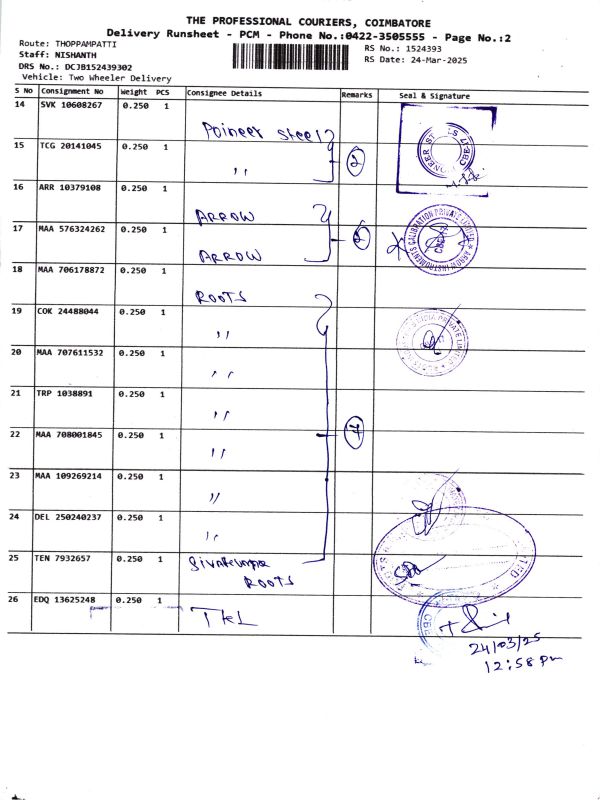 THE PROFESSIONAL COURIERS, COIMBATORE
Delivery Runsheet - PCM - Phone No.:0422-3505555 - Page No.:2
Route: THOPPAMPATTI
Staff: NISHANTH
DRS No.: DCJB152439302
Vehicle: Two Wheeler Delivery
RS No.: 1524393
RS Date: 24-Mar-2025
S No Consignment No Weight PCS Consignee Details Remarks Seal & Signature
14 SVK 10608267 0.250 1 Poineer Steel
15 TCG 20141045 0.250 1 " 2
16 ARR 10379108 0.250 1 ARROW
17 MAA 576324262 0.250 1 ARROW 2
18 MAA 706178872 0.250 1 ROOTS
19 COK 24488044 0.250 1 "
20 MAA 707611532 0.250 1 "
21 TRP 1038891 0.250 1 "
22 MAA 708001845 0.250 1 " 7
23 MAA 109269214 0.250 1 "
24 DEL 250240237 0.250 1 "
25 TEN 7932657 0.250 1
ROOTS
26 EDQ 13625248 0.250 1
ARROW INSTRUMENTS CALIBRATION PRIVATE LIMITED
24/03/25
12:58 Pm